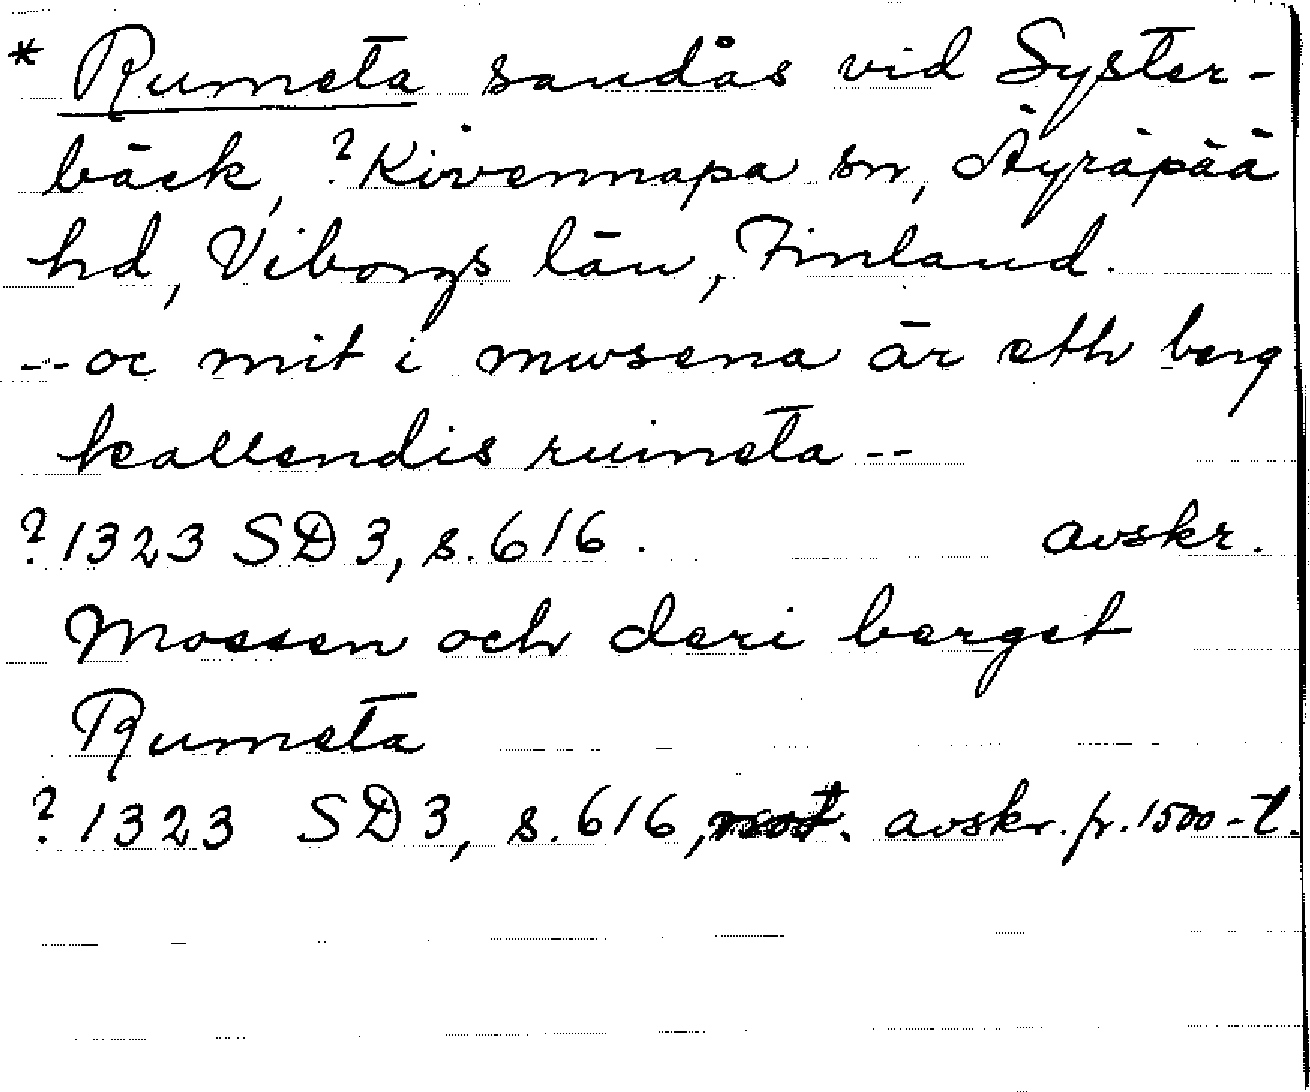 * Rumeta sandås vid Syster-
bäck, ?Kivennapa sn, Äyräpää
hd, Viborgs län, Finland.
-- oc mit i mwsena är eth berg
kallendis rumeta --
?1323 SD 3, s. 616. avskr.
Mossen och deri berget
Rumeta
?1323 SD 3, s. 616, not. avskr. fr. 1500-t.